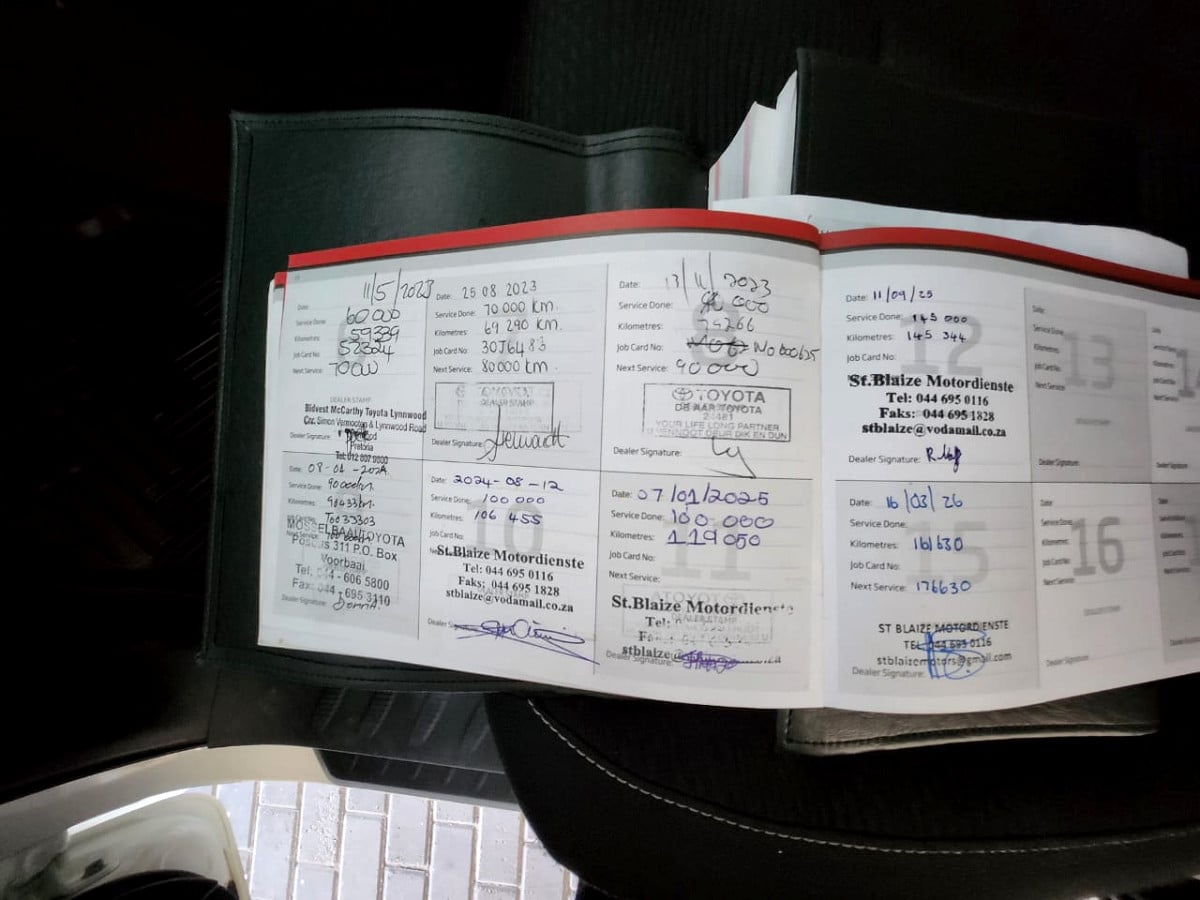 Date: 11/5/2023
Service Done: 60 000
Kilometres: 59339
Job Card No: 52324
Next Service: 70000
DEALER STAMP
Bidvest McCarthy Toyota Lynnwood
Cnr. Simon Vermooten & Lynnwood Road
Pretoria
Tel: 012 807 9800
Dealer Signature:
Date: 25 08 2023
Service Done: 70 000 km.
Kilometres: 69 290 km.
Job Card No: 30J6483
Next Service: 80 000 km
DEALER STAMP
Dealer Signature:
8
Date: 13/11/2023
Service Done: 000
Kilometres: 79266
Job Card No: No 000625
Next Service: 90 000
TOYOTA
DE AAR TOYOTA
YOUR LIFE LONG PARTNER
U VENNOOT DEUR DIK EN DUN
Dealer Signature:
Date:
Service Done: 90000km
Kilometres: 98433km.
MOSSELBAAI TOYOTA
311 P.O. Box
Voorbaai
Tel: 044 - 606 5800
Fax: 044 - 695 3110
Dealer Signature:
10
Date: 2024-08-12
Service Done: 100 000
Kilometres: 106 455
Job Card No:
St.Blaize Motordienste
Tel: 044 695 0116
Faks: 044 695 1828
stblaize@vodamail.co.za
Dealer
11
Date: 07/01/2025
Service Done: 100 000
Kilometres: 119050
Job Card No:
Next Service:
St.Blaize Motordienste
Tel:
stblaize
Dealer Signature:
12
Date: 11/09/25
Service Done: 145 000
Kilometres: 145 344
Job Card No:
St.Blaize Motordienste
Tel: 044 695 0116
Faks: 044 695 1828
stblaize@vodamail.co.za
Dealer Signature:
13
Date:
Service Done:
Kilometres:
Job Card No:
Next Service
Dealer Signature:
14
15
Date: 16/03/26
Service Done:
Kilometres: 161630
Job Card No:
Next Service: 176630
ST BLAIZE MOTORDIENSTE
TEL 044 695 0116
stblaizemotors@gmail.com
Dealer Signature:
16
Date:
Service Done:
Kilometres:
Job Card No:
Next Service
Dealer Signature: